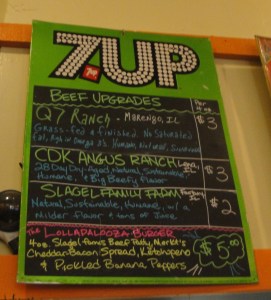 7UP
BEEF UPGRADES
Q7 RANCH - MARENGO, IL
$3
Grass-fed & finished. No Saturated
Fat, High in Omega 3's, Humane, Natural, Sustainable
CDK ANGUS RANCH
$3
28 Day Dry-Aged, Natural, Sustainable,
Humane, & Big Beefy flavor
SLAGEL FAMILY FARM
$2
Natural, Sustainable, Humane, w/ a
Milder flavor & tons of
The LOLLAPALOOZA BURGER
4oz. Slagel farms Beef Patty, Merkt's
Cheddar Bacon Spread, Ketchapeno
& Pickled Banana Peppers
$5.00